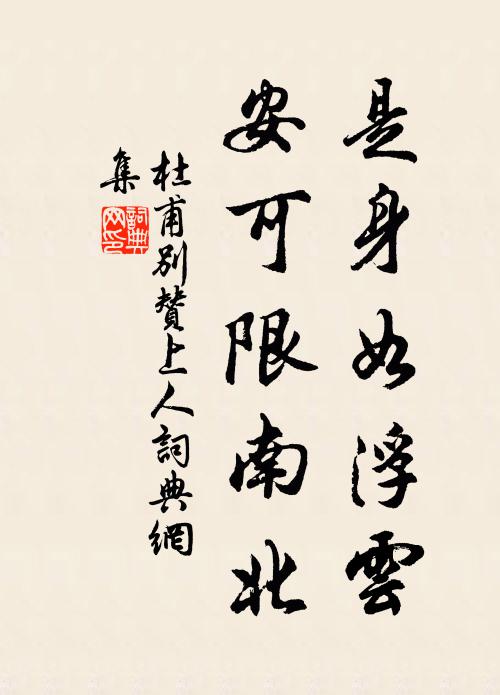 是身如浮雲
安可限南北
杜甫別贊上人詞典網
集
詞典
网印